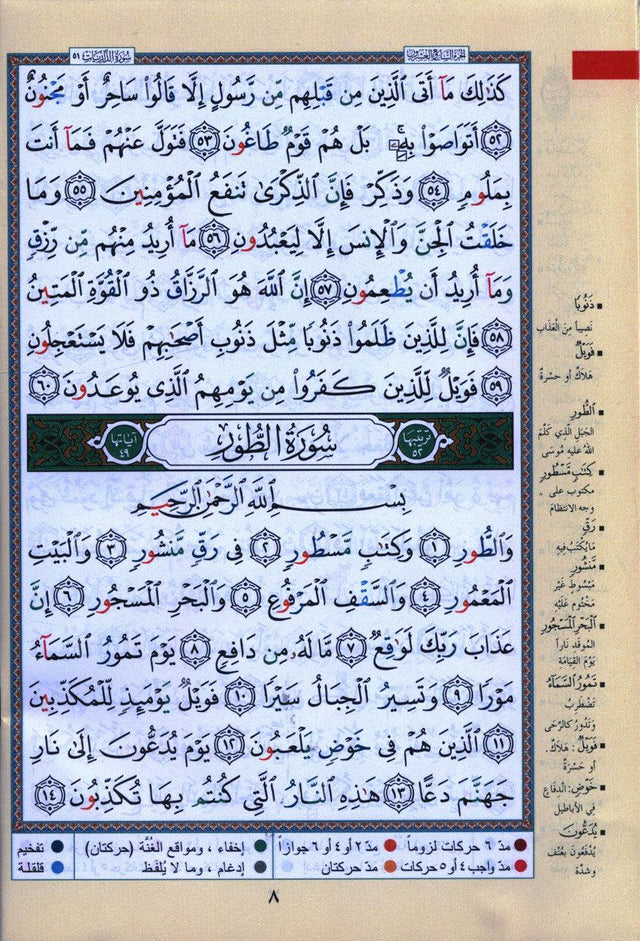 الجزء السابع والعشرون
سورة الذاريات ٥١
كَذَٰلِكَ مَآ أَتَى ٱلَّذِينَ مِن قَبْلِهِم مِّن رَّسُولٍ إِلَّا قَالُوا۟ سَاحِرٌ أَوْ مَجْنُونٌ
٥٢ أَتَوَاصَوْا۟ بِهِۦ ۚ بَلْ هُمْ قَوْمٌ طَاغُونَ ٥٣ فَتَوَلَّ عَنْهُمْ فَمَآ أَنتَ
بِمَلُومٍ ٥٤ وَذَكِّرْ فَإِنَّ ٱلذِّكْرَىٰ تَنفَعُ ٱلْمُؤْمِنِينَ ٥٥ وَمَا
خَلَقْتُ ٱلْجِنَّ وَٱلْإِنسَ إِلَّا لِيَعْبُدُونِ ٥٦ مَآ أُرِيدُ مِنْهُم مِّن رِّزْقٍ
وَمَآ أُرِيدُ أَن يُطْعِمُونِ ٥٧ إِنَّ ٱللَّهَ هُوَ ٱلرَّزَّاقُ ذُو ٱلْقُوَّةِ ٱلْمَتِينُ
٥٨ فَإِنَّ لِلَّذِينَ ظَلَمُوا۟ ذَنُوبًا مِّثْلَ ذَنُوبِ أَصْحَٰبِهِمْ فَلَا يَسْتَعْجِلُونِ
٥٩ فَوَيْلٌ لِّلَّذِينَ كَفَرُوا۟ مِن يَوْمِهِمُ ٱلَّذِى يُوعَدُونَ ٦٠
ترتيبها ٥٢
سُورَةُ الطُّورِ
آياتها ٤٩
بِسْمِ ٱللَّهِ ٱلرَّحْمَٰنِ ٱلرَّحِيمِ
وَٱلطُّورِ ١ وَكِتَٰبٍ مَّسْطُورٍ ٢ فِى رَقٍّ مَّنشُورٍ ٣ وَٱلْبَيْتِ
ٱلْمَعْمُورِ ٤ وَٱلسَّقْفِ ٱلْمَرْفُوعِ ٥ وَٱلْبَحْرِ ٱلْمَسْجُورِ ٦ إِنَّ
عَذَابَ رَبِّكَ لَوَٰقِعٌ ٧ مَّا لَهُۥ مِن دَافِعٍ ٨ يَوْمَ تَمُورُ ٱلسَّمَآءُ
مَوْرًا ٩ وَتَسِيرُ ٱلْجِبَالُ سَيْرًا ١٠ فَوَيْلٌ يَوْمَئِذٍ لِّلْمُكَذِّبِينَ
١١ ٱلَّذِينَ هُمْ فِى خَوْضٍ يَلْعَبُونَ ١٢ يَوْمَ يُدَعُّونَ إِلَىٰ نَارِ
جَهَنَّمَ دَعًّا ١٣ هَٰذِهِ ٱلنَّارُ ٱلَّتِى كُنتُم بِهَا تُكَذِّبُونَ ١٤
ذَنُوبًا
نَصيباً مِنَ العَذاب
فَوَيْلٌ
هَلاكٌ أو حسْرةٌ
ٱلطُّورِ
الجَبَلِ الَّذي كَلَّمَ
اللهُ عليه مُوسَى
كِتَٰبٍ مَّسْطُورٍ
مكتوب على
وجه الانتظامِ
رَقٍّ
ما يُكْتَبُ فيهِ
مَّنشُورٍ
مَبْسُوطٍ غَيْرِ
مَخْتُومٍ عَلَيْهِ
ٱلْبَحْرِ ٱلْمَسْجُورِ
المُوقَدِ ناراً
يَوْمَ القِيَامَةِ
تَمُورُ ٱلسَّمَآءُ
تَضْطَرِبُ
وَتَدُورُ كالرَّحَى
فَوَيْلٌ: هَلاكٌ
أو حَسْرَةٌ
خَوْضٍ: اندفاعٍ
في الأباطيلِ
يُدَعُّونَ
يُدْفَعُونَ بِعُنْفٍ
وشدَّةٍ
مدّ ٦ حركات لزوماً مدّ ٢ أو ٤ أو ٦ جوازاً إخفاء ، ومواقع الغُنَّة (حركتان) تفخيم
مدّ واجب ٤ أو ٥ حركات مدّ حركتان إدغام ، وما لا يُلفَظ قلقلة
٨